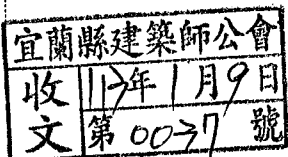 宜蘭縣建築師公會
收文
113年1月9日
第0037號